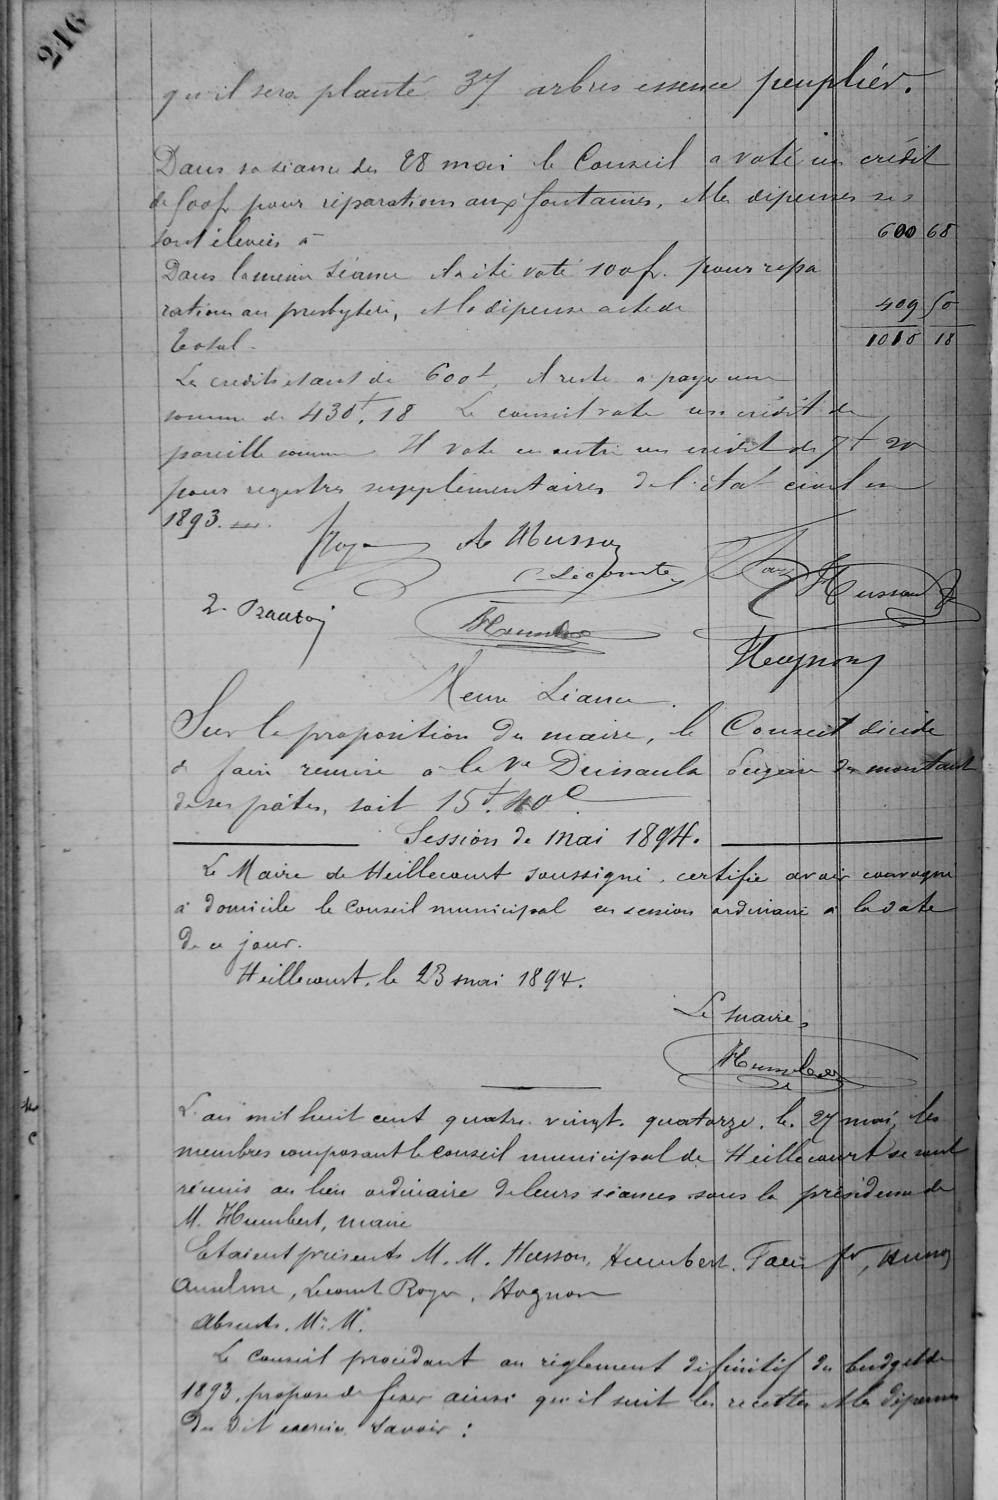 216
qu'il sera planté 37 arbres essence peuplier.
Dans sa séance du 28 mai le Conseil a voté un crédit
de 500f pour réparations aux fontaines, et les dépenses se
sont élevées à 600 68
Dans la même séance il a été voté 100f. pour répa
rations au presbytère, et la dépense a été de 409 50
Total 1010 18
Le crédit étant de 600f, il reste à payer une
somme de 430f,18 Le conseil vote un crédit de
pareille somme. Il vote en outre un crédit de 7f 20
pour registres supplémentaires de l'état civil en
1893.
Roger A Husson
Lecomte Husson
Humbert
Hognon
Même Séance.
Sur la proposition du maire, le Conseil décide
de faire remise à la Ve du montant
de ses pâtes, soit 15f.40c
Session de mai 1894.
Le Maire de Heillecourt soussigné, certifie avoir convoqué
à domicile le conseil municipal en session ordinaire à la date
de ce jour.
Heillecourt, le 23 mai 1894.
Le maire,
Humbert
L'an mil huit cent quatre vingt quatorze, le 27 mai, les
membres composant le conseil municipal de Heillecourt se sont
réunis au lieu ordinaire de leurs séances sous la présidence de
M. Humbert, maire
Etaient présents M. M. Husson, Humbert,
Anselme, Lecomte Roger, Hognon
Absents. M. M.
Le conseil procédant au règlement définitif du budget de
1893, propose de fixer ainsi qu'il suit les recettes et les dépenses
du dit exercice savoir :